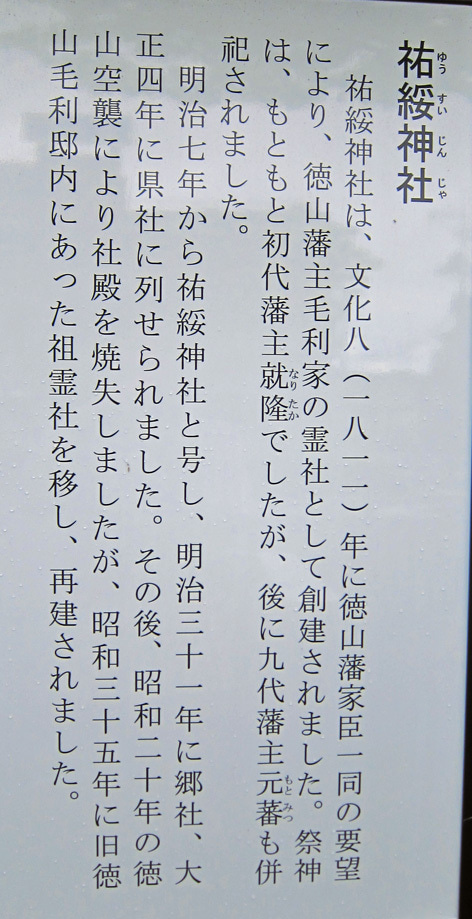 祐綏神社
ゆうすいじんじゃ
祐綏神社は、文化八（一八一一）年に徳山藩家臣一同の要望
により、徳山藩主毛利家の霊社として創建されました。祭神
は、もともと初代藩主就隆でしたが、後に九代藩主元蕃も併
なりたか
もとみつ
祀されました。
明治七年から祐綏神社と号し、明治三十一年に郷社、大
正四年に県社に列せられました。その後、昭和二十年の徳
山空襲により社殿を焼失しましたが、昭和三十五年に旧徳
山毛利邸内にあった祖霊社を移し、再建されました。